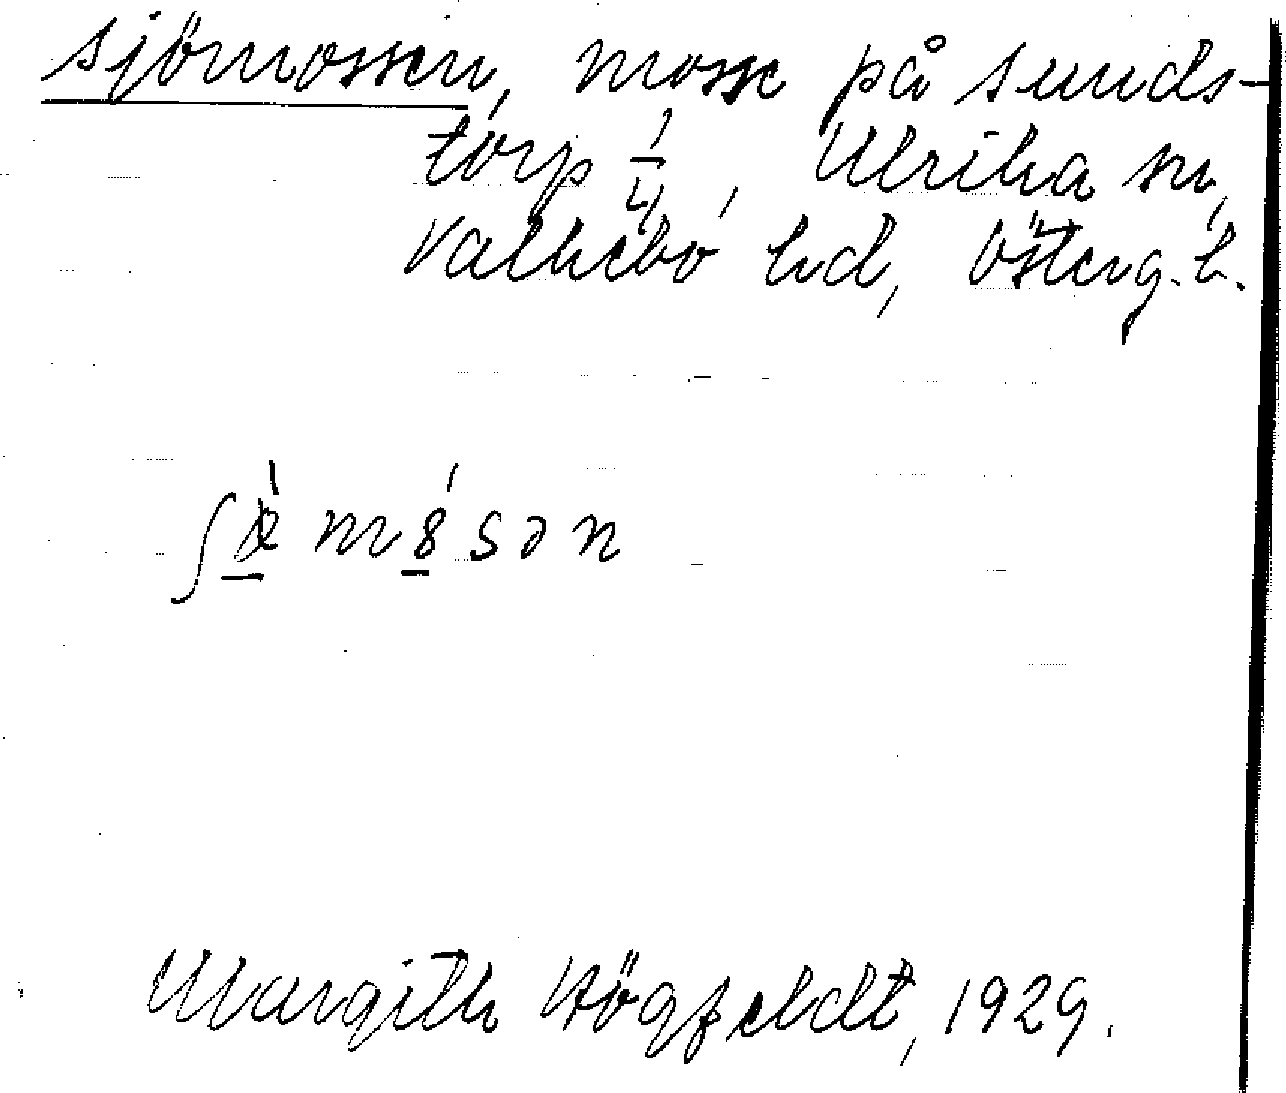 Sjömossen, mosse på Sunds-
torp 1/4, Ulrika sn,
Valkebo hd, Österg. l.
ʃø̀ m8́sən
Margith Högfeldt, 1929.